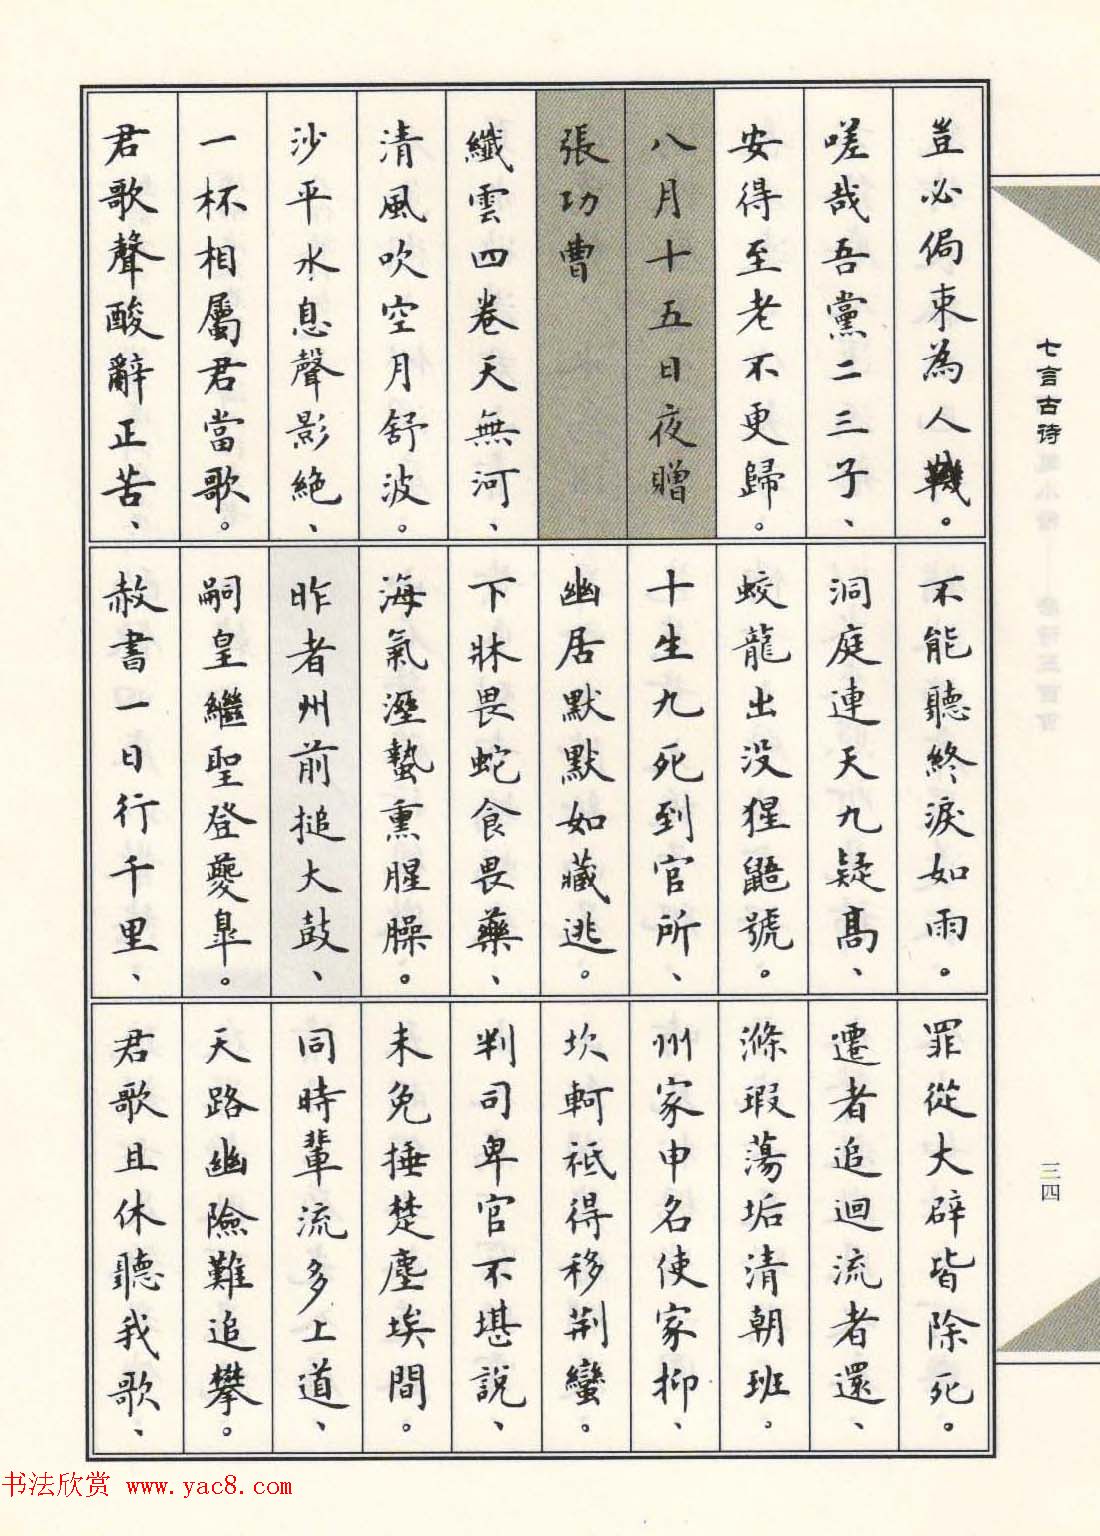 七言古诗
豈必侷束為人鞿。
嗟哉吾黨二三子、
安得至老不更歸。
八月十五日夜贈
張功曹
纖雲四卷天無河、
清風吹空月舒波。
沙平水息聲影絶、
一杯相屬君當歌。
君歌聲酸辭正苦、
不能聽終淚如雨。
洞庭連天九疑髙、
蛟龍出没猩鼯號。
十生九死到官所、
幽居默默如藏逃。
下牀畏蛇食畏藥、
海氣溼蟄熏腥臊。
昨者州前搥大鼓、
嗣皇繼聖登夔皐。
赦書一日行千里、
罪從大辟皆除死。
遷者追迴流者還、
滌瑕蕩垢清朝班。
州家申名使家抑、
坎軻祗得移荆蠻。
判司卑官不堪說、
未免捶楚塵埃間。
同時輩流多上道、
天路幽險難追攀。
君歌且休聽我歌、
三四
书法欣赏 www.yac8.com